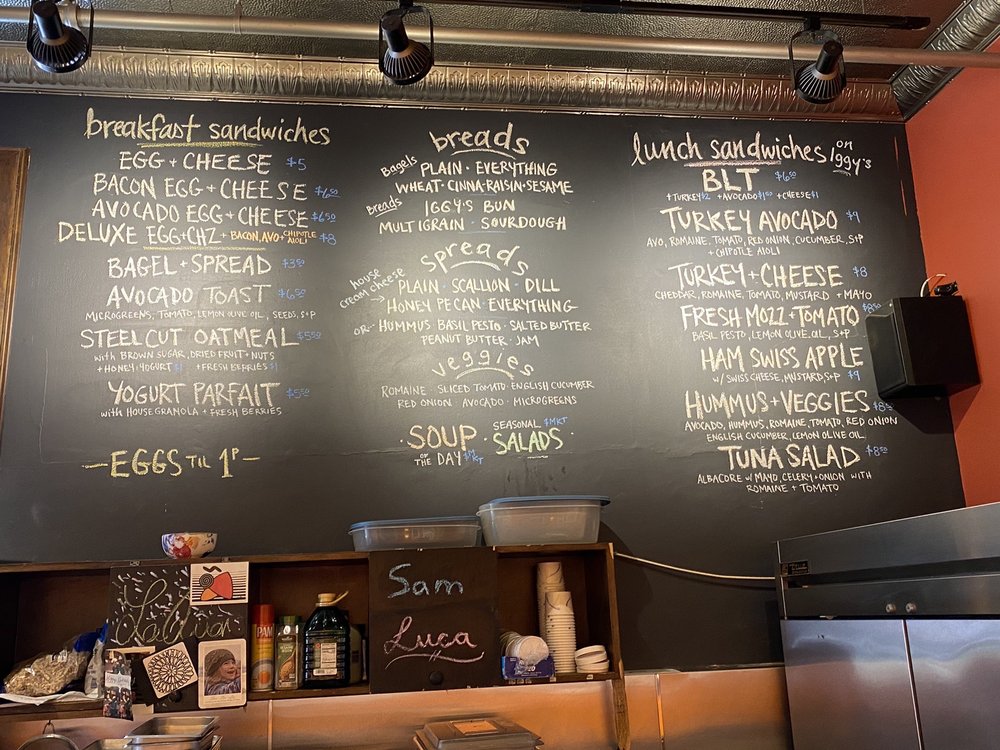 breakfast sandwiches
EGG + CHEESE $5
BACON EGG + CHEESE $6.50
AVOCADO EGG + CHEESE $6.50
DELUXE EGG + CHZ + BACON, AVO + CHIPOTLE AIOLI $8
BAGEL + SPREAD $3.50
AVOCADO TOAST $6.50
MICROGREENS, TOMATO, LEMON OLIVE OIL, SEEDS, S+P
STEEL CUT OATMEAL $5.50
with BROWN SUGAR, DRIED FRUIT + NUTS
+ HONEY YOGURT $1 + FRESH BERRIES $1
YOGURT PARFAIT $5.50
with HOUSE GRANOLA + FRESH BERRIES
— EGGS TIL 1P —
breads
Bagels PLAIN · EVERYTHING
WHEAT · CINNA-RAISIN · SESAME
Breads IGGY'S BUN
MULTIGRAIN · SOURDOUGH
spreads
house cream cheese → PLAIN · SCALLION · DILL
HONEY PECAN · EVERYTHING
OR-- HUMMUS BASIL PESTO · SALTED BUTTER
PEANUT BUTTER · JAM
veggies
ROMAINE · SLICED TOMATO · ENGLISH CUCUMBER
RED ONION · AVOCADO · MICROGREENS
· SOUP · OF THE DAY $MKT
SEASONAL $MKT
SALADS ·
lunch sandwiches on Iggy's
BLT $6.50
+ TURKEY $2 + AVOCADO $1.50 + CHEESE $1
TURKEY AVOCADO $9
AVO, ROMAINE, TOMATO, RED ONION, CUCUMBER, S+P
+ CHIPOTLE AIOLI
TURKEY + CHEESE $8
CHEDDAR, ROMAINE, TOMATO, MUSTARD + MAYO
FRESH MOZZ + TOMATO $8.50
BASIL PESTO, LEMON OLIVE OIL, S+P
HAM SWISS APPLE
W/ SWISS CHEESE, MUSTARD, S+P $9
HUMMUS + VEGGIES $8.50
AVOCADO, HUMMUS, ROMAINE, TOMATO, RED ONION
ENGLISH CUCUMBER, LEMON OLIVE OIL
TUNA SALAD $8.50
ALBACORE W/ MAYO, CELERY + ONION WITH
ROMAINE + TOMATO
Sam
Luca
PAN